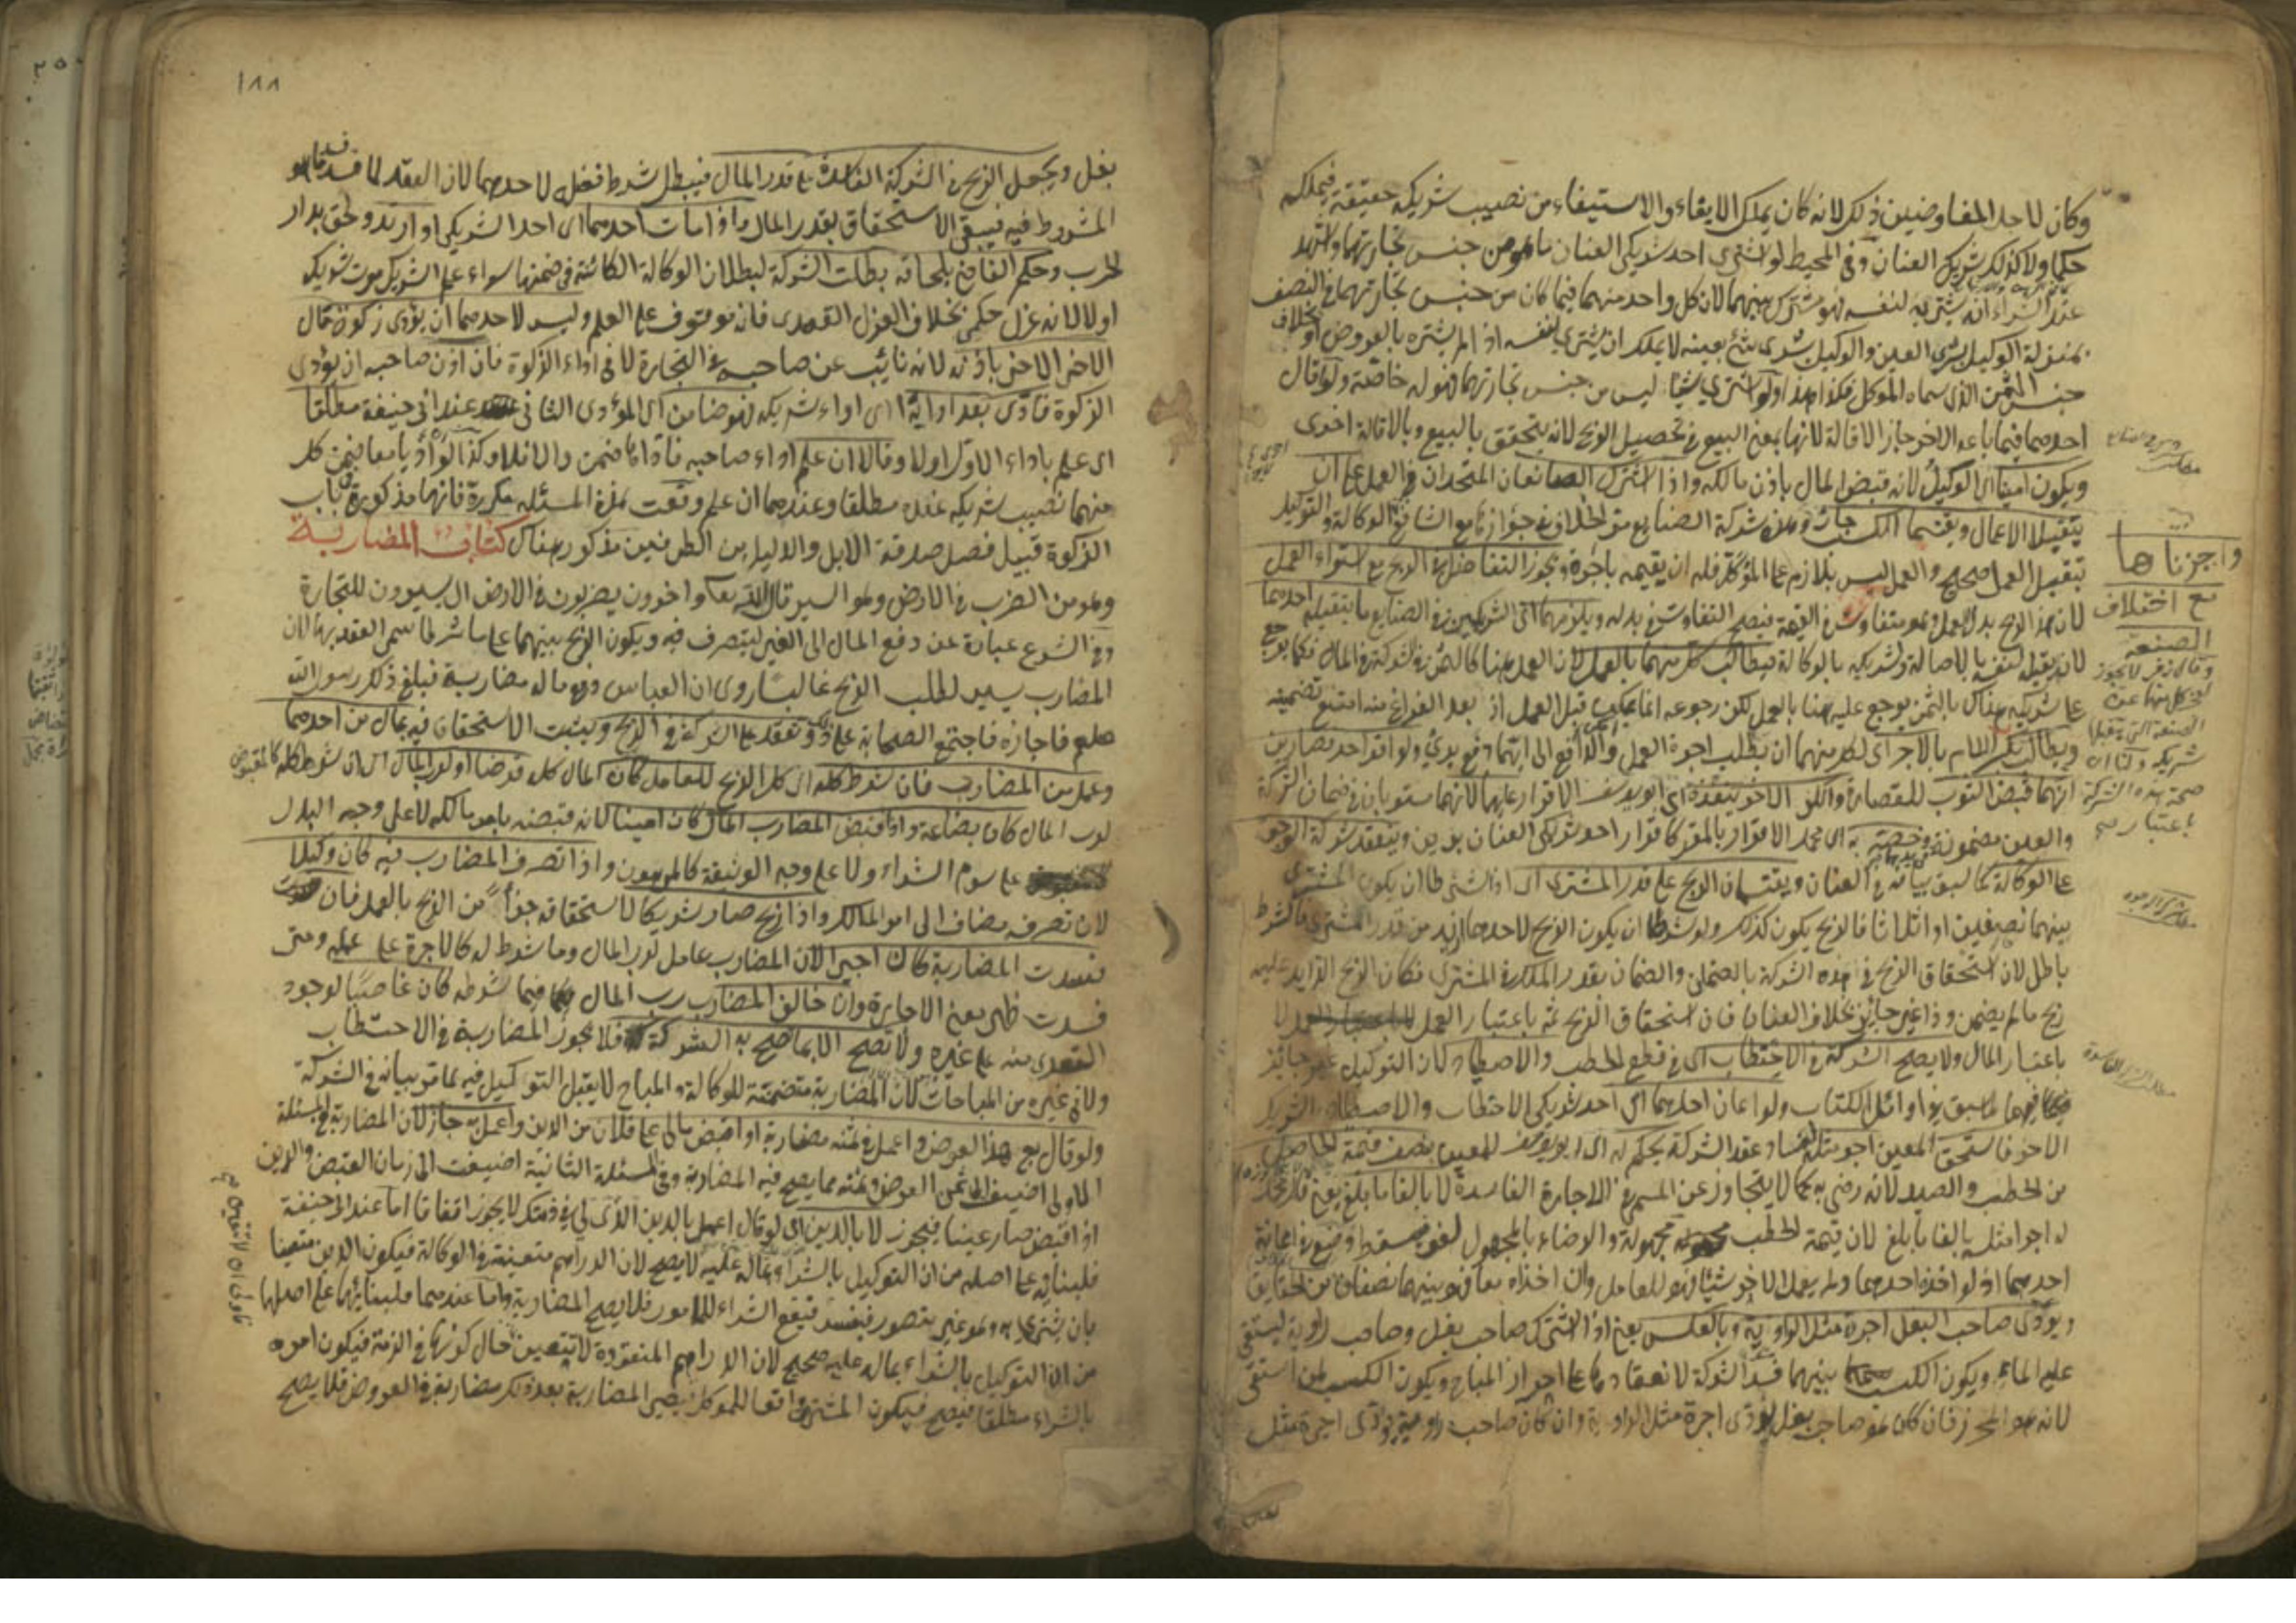 وكان لاحد المفاوضين ذلك لانه كان يملك الايفاء والاستيفاء من نصيب شريكه حقيقة فيملكه
حكما ولا كذلك شريك العنان وفي المحيط لو اشترى احد شريكي العنان ما هو من جنس تجارتهما واشهد
عند الشراء انه يشتريه لنفسه فهو مشترك بينهما لان كل واحد منهما فيما كان من جنس تجارتهما في النصف
بمنزلة الوكيل بشرى العين والوكيل بشرى شئ بعينه لا يملك ان يشترى لنفسه اذا لم يشتره بالعروض او بخلاف
جنس الثمن الذى سماه الموكل فكذا هذا ولو اشترى شيئا ليس من جنس تجارتهما فهو له خاصة ولو اقال
احدهما فيما باعه الاخر جاز الاقالة لانها بمعنى البيع في تحصيل الربح لانه يتحقق بالبيع وبالاقالة اخرى
ويكون امينا اى الوكيل لانه قبض المال باذن مالكه واذا اشترك الصانعان المتحدان في العمل على ان
يتقبلا الاعمال ويقتسما الكسب جاز وهذه شركة الصنايع مر الخلاف في جوازها مع الشافعي في الوكالة والتوكيل
بتقبل العمل صحيح والعمل ليس بلازم على الموكل فله ان يقيمه باجره ويجوز التفاضل في الربح مع استواء العمل
لان هذا الربح بدل العمل وهو متفاوت في القيمة فيصح التفاوت في بدله ويلزمهما اى الشريكين في الصنايع ما يتقبله احدهما
لانه يقبله لنفسه بالاصالة ولشريكه بالوكالة فيطالب كل منهما بالعمل لان العمل هنا كالثمن في شركة في المال فكما يرجع
على شريكه هناك بالثمن يرجع عليه هنا بالعمل لكن رجوعه انما يكون قبل العمل اذ بعد الفراغ منه امتنع تضمينه
ويطالب كل منهما بالاجر اى لكل منهما ان يطلب اجرة العمل والدافع الى ايهما دفع برئ ولو اقر احد قصارين
انهما قبض الثوب للقصارة وانكر الاخر ينفذه اى ابو يوسف الاقرار عليهما لانهما مستويان في ضمان الشركة
والعين مضمونة وخصه به اى محمد الاقرار بالمقر كاقرار احد شريكي العنان بدين وينعقد شركة الوجوه
على الوكالة كما سبق بيانه في العنان ويقتسمان الربح على قدر المشترى اى اذا اشترطا ان يكون المشترى
بينهما نصفين او اثلاثا فالربح يكون كذلك ولو شرطا ان يكون الربح لاحدهما ازيد من قدر المشترى فالشرط
باطل لان استحقاق الربح في هذه الشركة بالضمان والضمان بقدر الملك في المشترى فكان الربح الزايد عليه
ربح مالم يضمن وذا غير جايز بخلاف العنان فان استحقاق الربح ثمه باعتبار العمل لا
باعتبار المال ولا يصح الشركة في الاحتطاب اى في قطع الحطب والاصطياد لان التوكيل غير جايز
فيهما لما سبق في اوائل الكتاب ولو اعان احدهما اى احد شريكي الاحتطاب والاصطياد الشريك
الاخر فاستحق المعين اجر مثله لفساد عقد الشركة يحكم له اى ابو يوسف للمعين بنصف قيمة الحاصل
من الحطب والصيد لانه رضى به كما لا يتجاوز عن المسمى في الاجارة الفاسدة لا بالغا ما بلغ يعنى قال محمد
له اجر مثله بالغا ما بلغ لان قيمة الحطب مجهولة والرضاء بالمجهول لغو فيسقط وضع في اعانة
احدهما اذ لو اخذه احدهما ولم يعمل الاخر شيئا فهو للعامل وان اخذاه معا فهو بينهما نصفان من الحقايق
ويؤدى صاحب البغل اجرة مثل الراوية وبالعكس يعنى اذا اشترك صاحب بغل وصاحب راوية ليستقى
عليه الماء ويكون الكسب بينهما فسد الشركة لانعقادها على احراز المباح ويكون الكسب لمن استقى
لانه هو المحرز فان كان هو صاحب بغل يؤدى اجرة مثل الراوية وان كان صاحب راوية يؤدى اجرة مثل
واجزناها
مع اختلاف
الصنعة
وقال زفر لا يجوز
شريكه ولنا ان
صحة هذه الشركة
باعتبار
١٨٨
بغل ويجعل الربح في الشركة الفاسدة على قدر المال فيبطل شرط فضل لاحدهما لان العقد لما فسد
المشروط فيه فيبقى الاستحقاق بقدر المال واذا مات احدهما اى احد الشريكين او ارتد ولحق بدار
الحرب وحكم القاضي بلحاقه بطلت الشركة لبطلان الوكالة الكائنة في ضمنها سواء علم الشريك موت شريكه
اولا لانه عزل حكمي بخلاف العزل القصدى فانه موقوف على العلم وليس لاحدهما ان يؤدى زكوة مال
الاخر الاخر باذنه لانه نائب عن صاحبه في التجارة لا في اداء الزكوة فان اذن صاحبه ان يؤدى
الزكوة فادى بعد ادائه اى اداء شريكه فهو ضامن اى المؤدى الثاني عند ابي حنيفة مطلقا
اى علم باداء الاول اولا وقالا ان علم اداء صاحبه فاداها ضمن والا فلا وكذا لو اديا معا ضمن كل
منهما نصيب شريكه عنده مطلقا وعندهما ان علم وقعت هذه المسئلة مكررة فانها مذكورة في باب
الزكوة قبيل فصل صدقة الابل والدليل من الطرفين مذكور هناك كتاب المضاربة
وهو من الضرب في الارض وهو السير قال الله تعا واخرون يضربون في الارض اى يسيرون للتجارة
وفي الشرع عبارة عن دفع المال الى الغير ليتصرف فيه ويكون الربح بينهما على ما شرطا سمى العقد بها لان
المضارب يسير لطلب الربح غالبا روى ان العباس دفع ماله مضاربة فبلغ ذلك رسول الله
صلعم فاجازه فاجتمع الصحابة على ذلك وتعقد على الشركة في الربح ويثبت الاستحقاق فيه بمال من احدهما
وعمل من المضارب فان شرط كله اى كل الربح للعامل كان المال كله قرضا او لرب المال اى ان شرط كله
لرب المال كان بضاعة واذا قبض المضارب المال كان امينا لانه قبضه بامر مالكه لا على وجه البدل
على سوم الشراء ولا على وجه الوثيقة كالمرهون واذا تصرف المضارب فيه كان وكيلا
لان تصرفه مضاف الى امر المالك واذا ربح صار شريكا لاستحقاقه جزأ من الربح بالعمل فان
فسدت المضاربة كان اجيرا لان المضارب عامل لرب المال وما شرط له كالاجرة على عمله ومتى
فسدت ظهر معنى الاجارة وان خالف المضارب رب المال فيما شرطه كان غاصبا لوجود
التعدى منه على غيره ولا تصح الا بما صح به الشركة فلا يجوز المضاربة في الاحتطاب
ولا في غيره من المباحات لان المضاربة متضمنة للوكالة والمباح لا يقبل التوكيل فيه لما مر بيانه في الشركة
ولو قال بع هذا العرض واعمل في ثمنه مضاربة او اقبض مالى على فلان من الدين واعمل به جاز لان المضاربة في المسئلة
الاولى اضيفت الى ثمن العرض وثمنه مما يصح فيه المضاربة وفي المسئلة الثانية اضيفت الى زمان القبض والدين
اذا قبض صار عينا فيجوز لا بالدين اى لو قال اعمل بالدين الذى لى في ذمتك لا يجوز اتفاقا اما عند ابي حنيفة
فلبنائه على اصله من ان التوكيل بالشراء بماله عليه لا يصح لان الدراهم متعينة في الوكالة فيكون الدين متعينا
بان يشترى به وهو غير متصور فيفسد فيقع الشراء للمامور فلا يصح المضاربة واما عندهما فلبنائهما على اصلهما
من ان التوكيل بالشراء بماله عليه صحيح لان الدراهم المنقودة لا تتعين حال كونها في الذمة فيكون امره
بالشراء مطلقا فيصح فيكون المشترى واقعا للموكل فيصير المضاربة بعد ذلك مضاربة في العروض فلا يصح